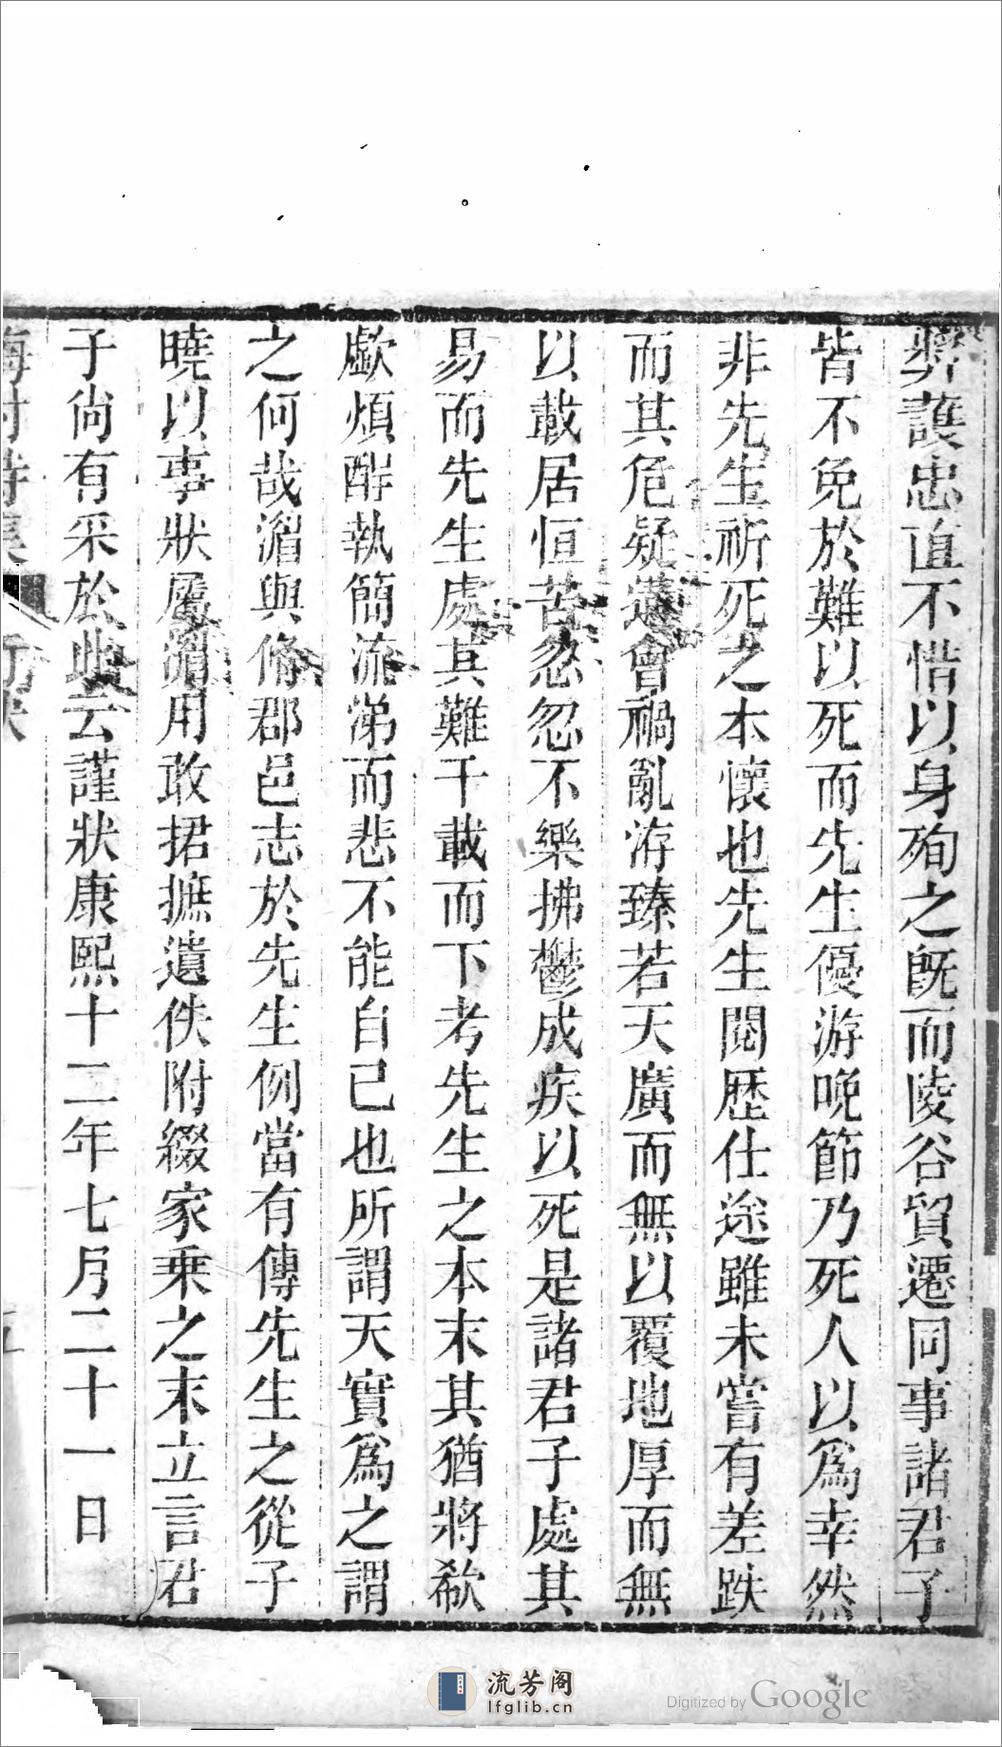 弊護忠直不惜以身殉之旣而陵谷貿遷同事諸君子
皆不免於難以死而先生優游晚節乃死人以爲幸然
非先生祈死之本懷也先生閱歷仕途雖未嘗有差跌
而其危疑遘會禍亂洊臻若天廣而無以覆地厚而無
以載居恒苦忽忽不樂拂鬱成疾以死是諸君子處其
易而先生處其難千載而下考先生之本末其猶將欷
歔煩酲執簡流涕而悲不能自己也所謂天實爲之謂
之何哉湄與脩郡邑志於先生例當有傳先生之從子
曉以事狀屬湄用敢捃摭遺佚附綴家乘之末立言君
子尙有采於此云謹狀康熙十二年七月二十一日
梅村詩集
流芳阁
lfglib.cn
Digitized by Google